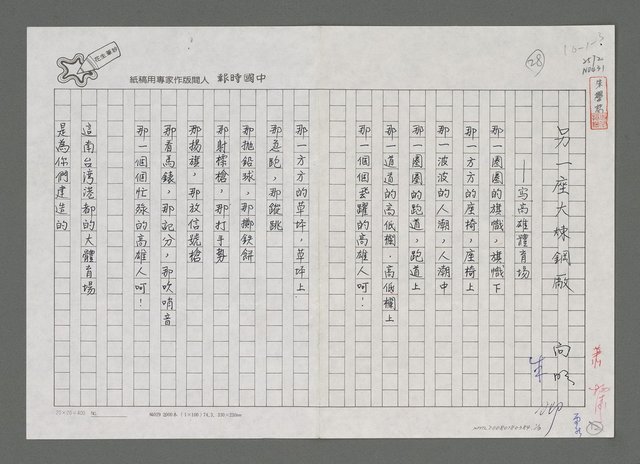 28
另一座大煉鋼廠
向明
——寫高雄體育場
那一圈圈的旗幟，旗幟下
那一方方的座椅，座椅上
那一波波的人潮，人潮中
那一圈圈的跑道，跑道上
那一道道的高低欄，高低欄上
那一個個飛躍的高雄人呵！
那一方方的草坪，草坪上
那急跑，那蹤跳
那拋鉛球，那擲鉄餅
那射標槍，那打手勢
那揚旗，那放信號槍
那看馬錶，那記分，那吹哨音
那一個個忙碌的高雄人呵！
這南台灣港都的大體育場
是為你們建造的
中國時報 人間版作家專用稿紙
20×20=400 NO.